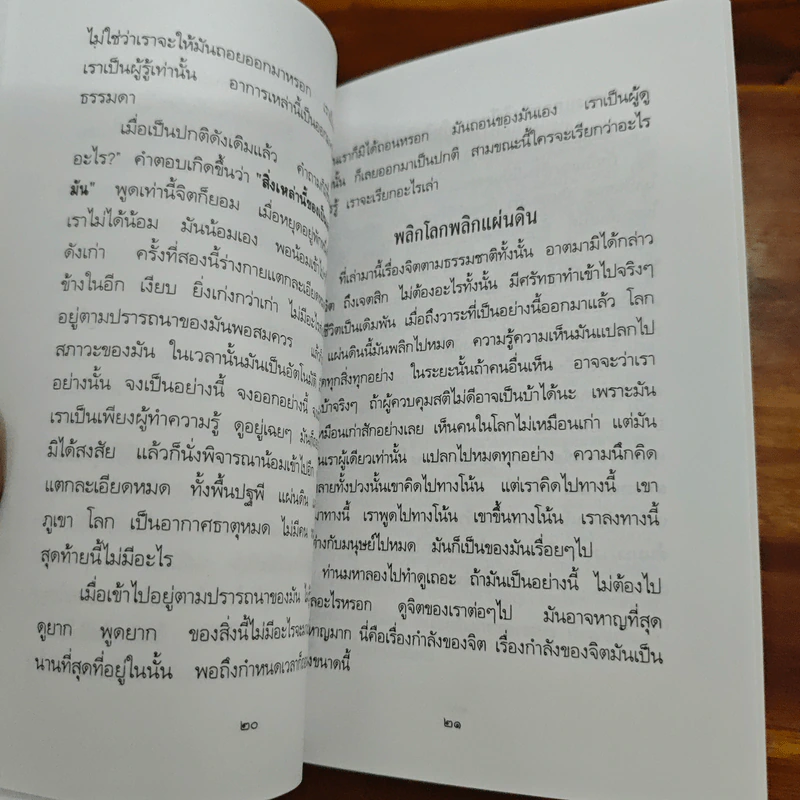 ไม่ใช่ว่าเราจะให้มันถอยออกมาหรอก
เราเป็นผู้รู้เท่านั้น อาการเหล่านี้เป็นออก
ธรรมดา
เมื่อเป็นปกติดังเดิมแล้ว
อะไร?" คำตอบเกิดขึ้นว่า "สิ่งเหล่านี้ของเป็น
มัน" พูดเท่านี้จิตก็ยอม เมื่อหยุดอยู่พัก
เราไม่ได้น้อม มันน้อมเอง พอน้อมเข้า
ดังเก่า ครั้งที่สองนี้ร่างกายแตกละเอียดหมด
ข้างในอีก เงียบ ยิ่งเก่งกว่าเก่า ไม่มีอะไร
อยู่ตามปรารถนาของมันพอสมควร แล้ว
สภาวะของมัน ในเวลานั้นมันเป็นอัตโนมัติ
อย่างนั้น จงเป็นอย่างนี้ จงออกอย่างนี้ จง
เราเป็นเพียงผู้ทำความรู้ ดูอยู่เฉยๆ มัน
มิได้สงสัย แล้วก็นั่งพิจารณาน้อมเข้าไปอีก
แตกละเอียดหมด ทั้งพื้นปฐพี แผ่นดิน
ภูเขา โลก เป็นอากาศธาตุหมด ไม่มีคน
สุดท้ายนี้ไม่มีอะไร
เมื่อเข้าไปอยู่ตามปรารถนาของมัน
ดูยาก พูดยาก ของสิ่งนี้ไม่มีอะไรจะมา
นานที่สุดที่อยู่ในนั้น พอถึงกำหนดเวลาก็
๒๐
นเราก็มิได้ถอนหรอก มันถอนของมันเอง เราเป็นผู้ดู
นั้น ก็เลยออกมาเป็นปกติ สามขณะนี้ใครจะเรียกว่าอะไร
รู้ เราจะเรียกอะไรเล่า
พลิกโลกพลิกแผ่นดิน
ที่เล่ามานี้เรื่องจิตตามธรรมชาติทั้งนั้น อาตมามิได้กล่าว
จิต ถึงเจตสิก ไม่ต้องอะไรทั้งนั้น มีศรัทธาทำเข้าไปจริงๆ
ชีวิตเป็นเดิมพัน เมื่อถึงวาระที่เป็นอย่างนี้ออกมาแล้ว โลก
แผ่นดินนี้มันพลิกไปหมด ความรู้ความเห็นมันแปลกไป
ดทุกสิ่งทุกอย่าง ในระยะนั้นถ้าคนอื่นเห็น อาจจะว่าเรา
บ้าจริงๆ ถ้าผู้ควบคุมสติไม่ดีอาจเป็นบ้าได้นะ เพราะมัน
เหมือนเก่าสักอย่างเลย เห็นคนในโลกไม่เหมือนเก่า แต่มัน
นเราผู้เดียวเท่านั้น แปลกไปหมดทุกอย่าง ความนึกคิด
ลายทั้งปวงนั้นเขาคิดไปทางโน้น แต่เราคิดไปทางนี้ เขา
มาทางนี้ เราพูดไปทางโน้น เขาขึ้นทางโน้น เราลงทางนี้
ต่างกับมนุษย์ไปหมด มันก็เป็นของมันเรื่อยๆไป
ท่านมหาลองไปทำดูเถอะ ถ้ามันเป็นอย่างนี้ ไม่ต้องไป
ลอะไรหรอก ดูจิตของเราต่อๆไป มันอาจหาญที่สุด
หาญมาก นี่คือเรื่องกำลังของจิต เรื่องกำลังของจิตมันเป็น
งขนาดนี้
๒๑